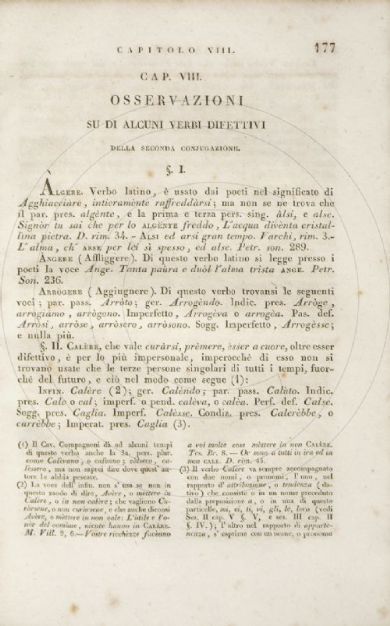 CAPITOLO VIII. 177
CAP. VIII.
OSSERVAZIONI
SU DI ALCUNI VERBI DIFETTIVI
DELLA SECONDA CONJUGAZIONE.
§. I.
ALGERE. Verbo latino, è usato dai poeti nel significato di
Agghiacciare, intieramente raffreddàrsi; ma non se ne trova che
il par. pres. algènte, e la prima e terza pers. sing. àlsi, e alse.
Signòr tu sai che per lo ALGENTE freddo, L'acqua divènta cristal-
lina pietra. D. rim. 34. - ALSI ed arsi gran tempo. Varchi, rim. 3.-
L'alma, ch' ARSE per lei sì spesso, ed alse. Petr. son. 289.
ANGERE (Affliggere). Di questo verbo latino si legge presso i
poeti la voce Ange. Tanta paùra e duòl l'alma trista ANGE. Petr.
Son. 236.
ARRÒGERE (Aggiugnere). Di questo verbo trovansi le seguenti
voci; par. pass. Arròto; ger. Arrogèndo. Indic. pres. Arròge,
arrogiamo, arrògono. Imperfetto, Arrogèva o arrogèa. Pas. def.
Arròsi, arròse, arròsero, arròsono. Sogg. Imperfetto, Arrogèsse;
e nulla più.
§. II. CALÈRE, che vale curàrsi, prèmere, èsser a cuore, oltre esser
difettivo, è per lo più impersonale, imperocchè di esso non si
trovano usate che le terze persone singolari di tutti i tempi, fuor-
chè del futuro, e ciò nel modo come segue (1):
INFIN. Calère (2); ger. Calèndo; par. pass. Calùto. Indic.
pres. Cale o cal; imperf. o pend. calèva, o calèa. Perf. def. Calse.
Sogg. pres. Caglia. Imperf. Calèsse. Condiz. pres. Calerèbbe, o
carrèbbe; Imperat. pres. Caglia (3).
(1) Il Cav. Compagnoni dà ad alcuni tempi
di questo verbo anche la 3a. pers. plur.
come Calèvano, o calèano; càlsero, ca-
lèssero, ma non saprei dire dove quest' au-
tore le abbia pescate.
(2) La voce dell'infin. non s'usa se non in
questo modo di dire, Avère, o mèttere in
Calère, o in non calère; che vagliono Cu-
ràrsene, o non curàrsene, e che anche diconsi
Avère, o mèttere in non cale: L'utile e l'o-
nòr del comùne, niente hanno in CALÈRE.
M. Vill. 9, 6.—Vostre ricchèzze facèano
a voi molte cose mèttere in non CALERE.
Tes. Br. 8. — Or sono a tutti in ira ed in
non CALE. D. rim. 45.
(3) Il verbo Calère va sempre accompagnato
con due nomi, o pronomi; l'uno, nel
rapporto d'attribuzione, o tendenza (da-
tivo) che consiste o in un nome preceduto
dalla preposizione a, o in una di queste
particelle, mi, ci, ti, vi, gli, le, loro (vedi
Sez. II cap. V §. V, e sez. III cap. II
§. IV.); l'altro nel rapporto di apparte-
nenza, s'esprime con un nome, o pronome